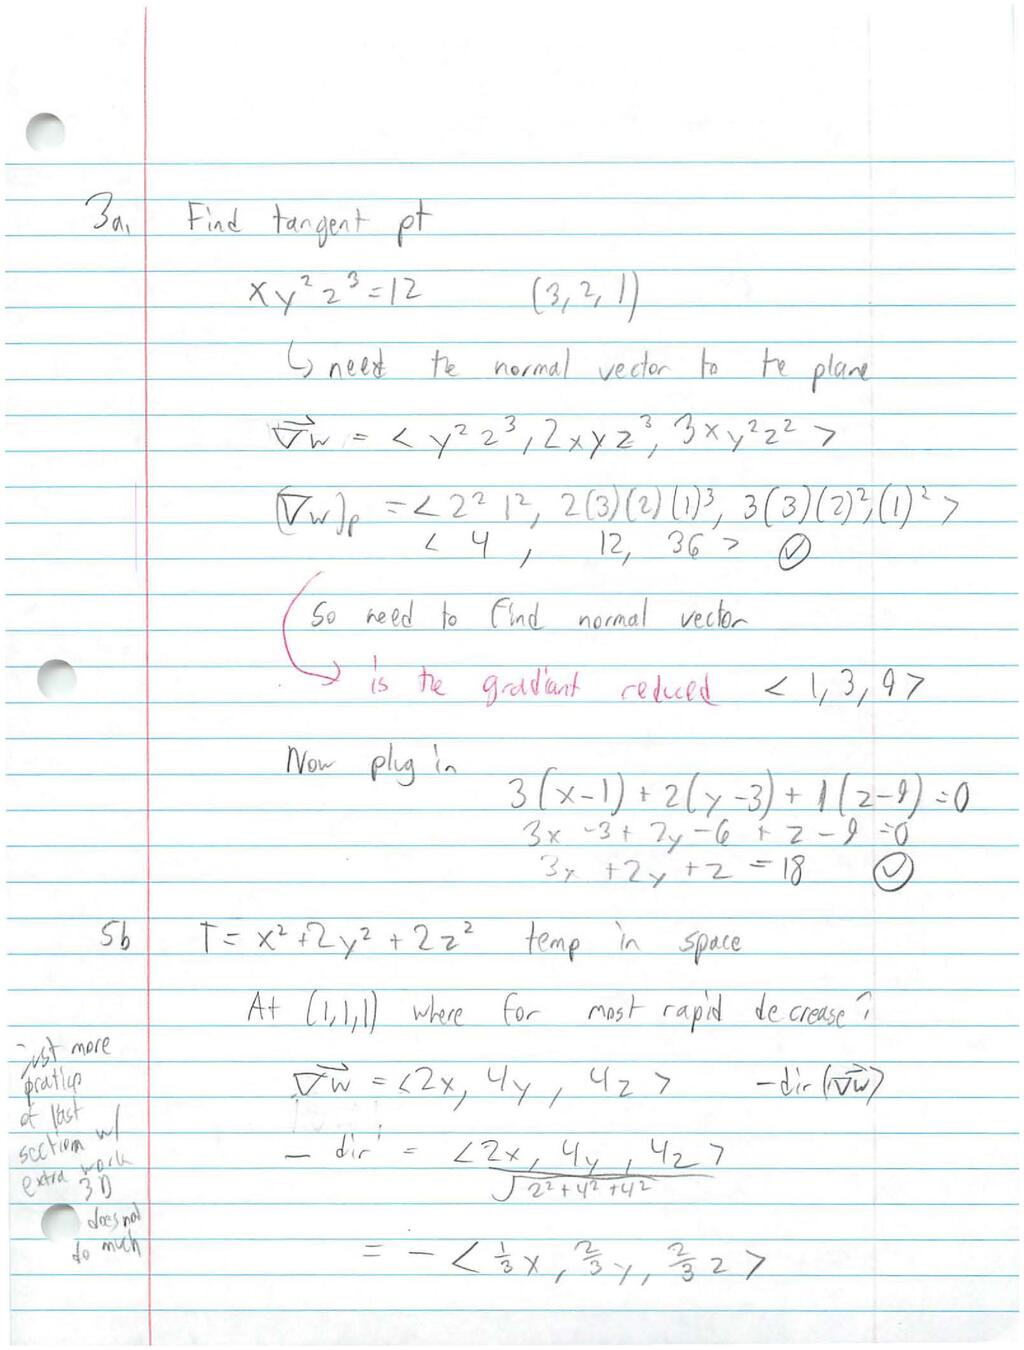 3a. Find tangent pt
xy²z³=12 (3,2,1)
↳ need the normal vector to te plane
∇w = < y²z³, 2xyz³, 3xy²z² >
(∇w)p = < 2² 1², 2(3)(2)(1)³, 3(3)(2)²,(1)² >
< 4, 12, 36 > ✓
So need to find normal vector
→ is the gradiant reduced < 1, 3, 9 >
Now plug in
3(x-1) + 2(y-3) + 1(z-9) = 0
3x -3 + 2y -6 + z -9 = 0
3x + 2y + z = 18 ✓
5b T = x² + 2y² + 2z² temp in space
At (1,1,1) where for most rapid decrease?
just more
pratice
of last
section w/
extra work
3D
does not
do much
∇w = <2x, 4y, 4z > -dir(∇w)
- dir = <2x, 4y, 4z>
√2²+4²+4²
= - < 1/3 x, 2/3 y, 2/3 z >